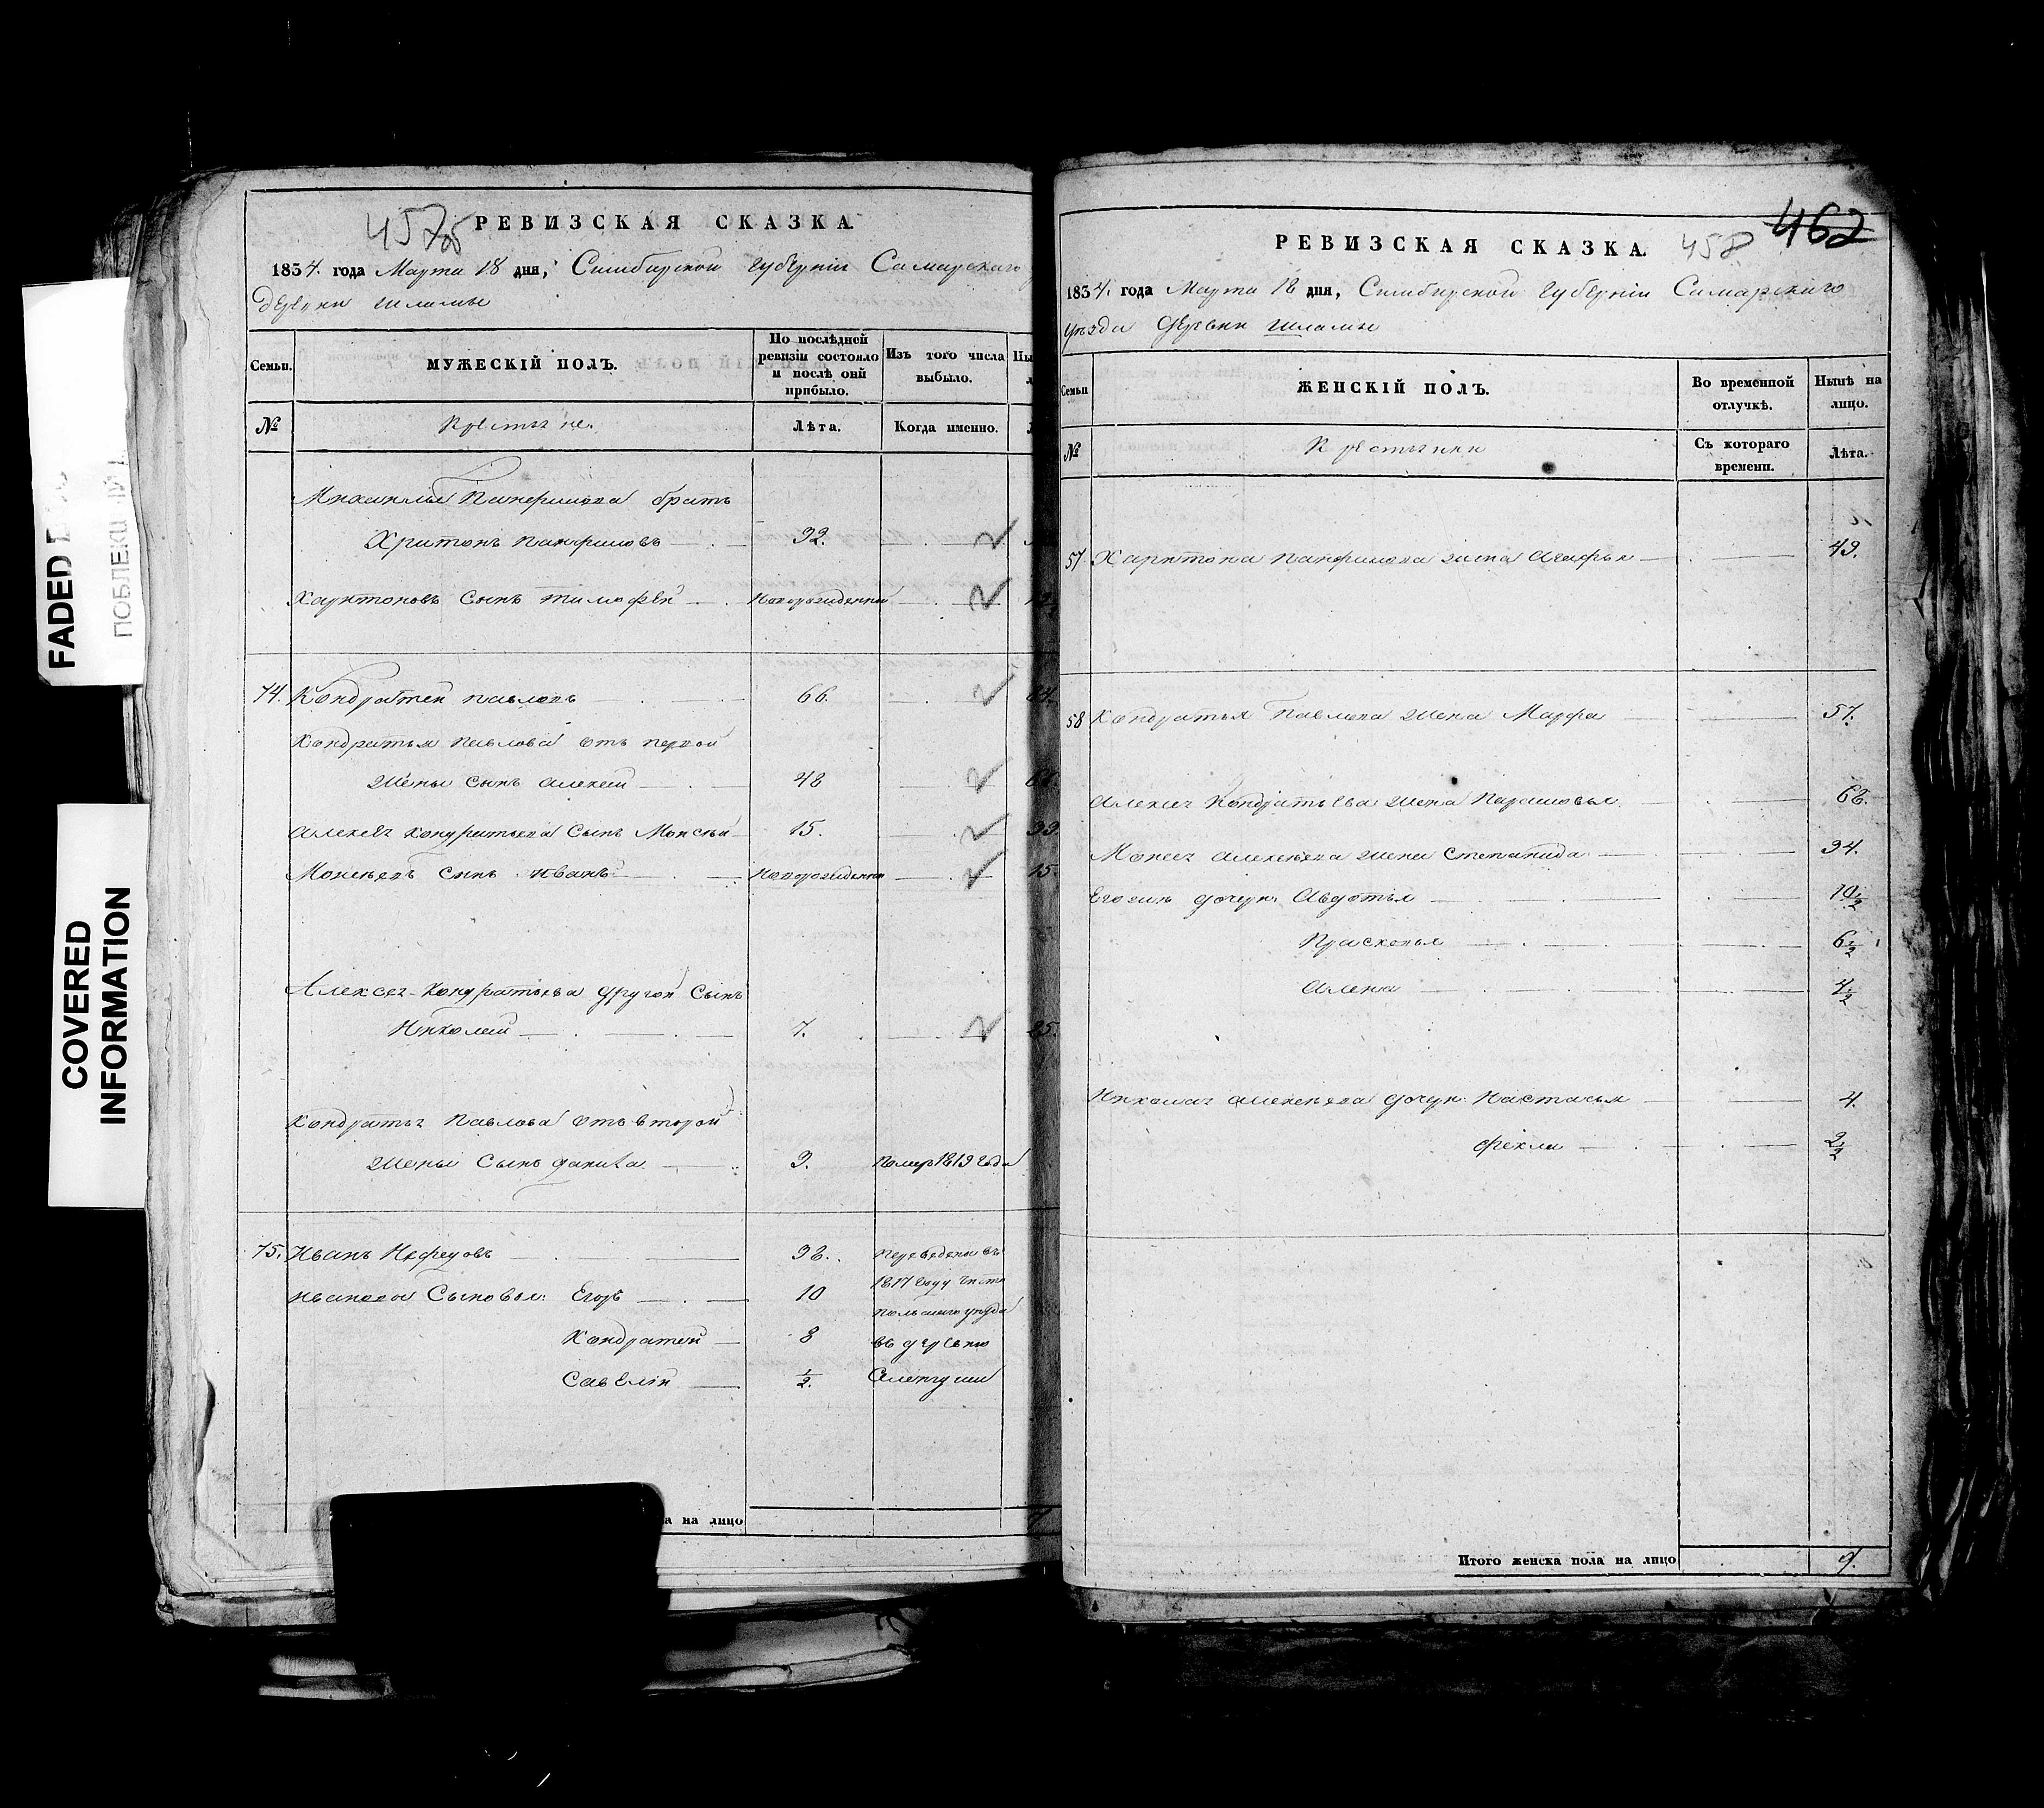 РЕВИЗСКАЯ СКАЗКА.
1834. года Марта 18 дня, Симбирской губернiи Самарскаго
деревни Шламы
Семьи.
МУЖЕСКIЙ ПОЛЪ.
По послѣдней ревизiи состояло и послѣ онй прибыло.
Изъ того числа выбыло.
№
Крестьяне.
Лѣта.
Когда именно.
Михаилы Панфилова братъ
Харитонъ Панфиловъ 32.
Харитоновъ сынъ Тимофей Новорожденной
74. Кондратей Павловъ 66.
Кондратья Павлова отъ первой
жены сынъ Алексей 48
Алексея Кондратьева сынъ Моисей 15. 33.
Моисеевъ сынъ Иванъ Новорожденной 15.
Алексея Кондратьева другой сынъ
Николай 7. 25.
Кондратья Павлова отъ второй
жены сынъ Данила 3. Помер 1819 года
75. Иванъ Нефедовъ 38. переведены въ
1817 году
Ивановы сыновья: Егоръ 10
уезда
Кондратей 8 въ деревню
Савелiй ½.
а на лицо
РЕВИЗСКАЯ СКАЗКА.
458
462
1834. года Марта 18 дня, Симбирской губернiи Самарскаго
уезда деревни Шламы
Семьи
ЖЕНСКIЙ ПОЛЪ.
Во временной отлучкѣ.
Нынѣ на лицо.
№
Крестьянки
Съ котораго времени.
Лѣта.
57 Харитона Панфилова жена Агафья 49.
58 Кондратья Павлова жена Марфа 57.
Алексея Кондратьева жена Парасковья 68.
Моисея Алексеева жена Степанида 34.
Егожъ дочери Авдотья 10½
Прасковья 6½
Алена 4½
Николая Алексеева дочери: Настасья 4.
Фекла 2½
Итого женска пола на лицо 9.
FADED
ПОБЛЕКШИЙ
COVERED
INFORMATION